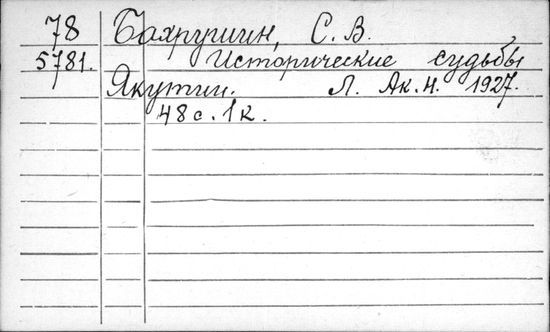 78 Бахрушин, С. В.
5781. Исторические судьбы
Якутии. Л. Ак.Н. 1927.
48 с. 1 к.